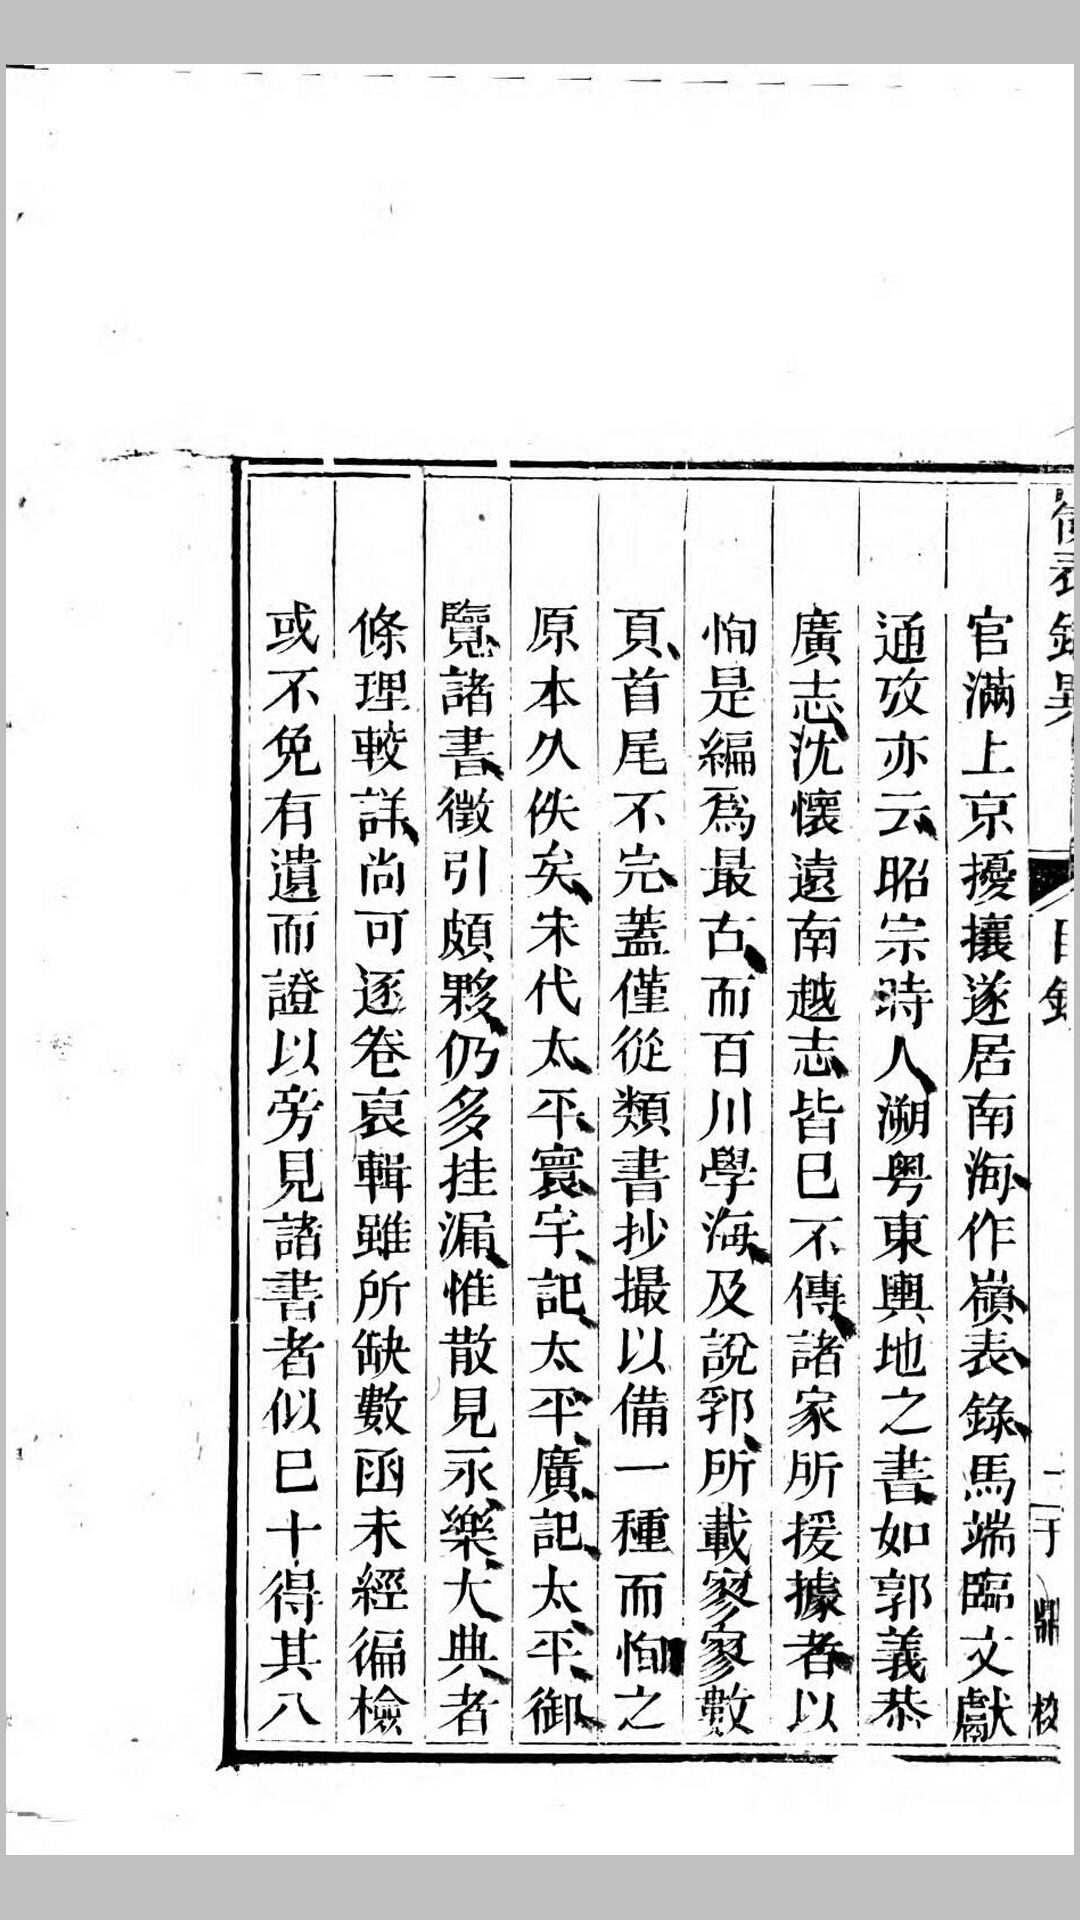 嶺表錄異
目錄
二
于鼎校
官滿上京擾攘遂居南海作嶺表錄馬端臨文獻
通攷亦云昭宗時人溯粤東輿地之書如郭義恭
廣志沈懷遠南越志皆巳不傳諸家所援據者以
恂是編爲最古而百川學海及說郛所載寥寥數
頁首尾不完蓋僅從類書抄撮以備一種而恂之
原本久佚矣宋代太平寰宇記太平廣記太平御
覽諸書徵引頗夥仍多挂漏惟散見永樂大典者
條理較詳尚可逐卷裒輯雖所缺數函未經徧檢
或不免有遺而證以旁見諸書者似巳十得其八